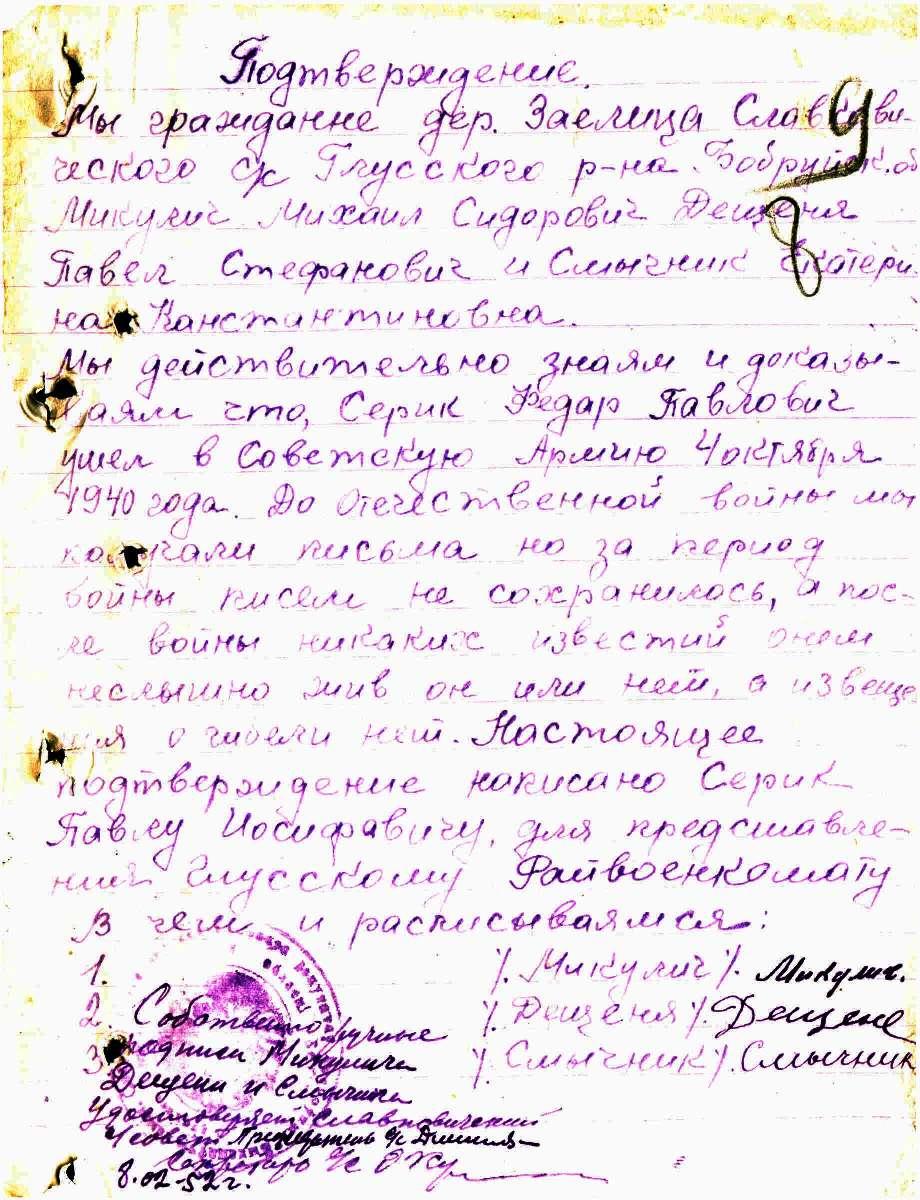 Подтверждение.
Мы гражданне дер. Заелица Славкови-
ческого с/с Глусского р-на Бобруйск. об
Микулич Михаил Сидорович Дещеня
Павел Стефанович и Смычник Екатери
на Канстантиновна.
Мы действительно знаям и доказы-
ваям что, Серик Федар Павлович
ушел в Советскую Армию 4 октября
1940 года. До Отечественной войны мы
получали письма но за период
войны писем не сохранилось, а пос-
ле войны никаких известий онем
неслышно жив он или нет, а извеще
ния о гибели нет. Настоящее
подтверждение написано Серик
Павлу Иосифавичу, для представле-
ния Глусскому Райвоенкомату
В чем и расписываямся:
1. /. Микулич /. Микулич.
2. /. Дещеня /. Дещене
3. /. Смычник /. Смычник
Собственноручные
подписи Микулича
Дещени и Смычника
Удостоверяет Славковичский
с/совет Председатель с/с
Секретарь с/с
8.02-52 г.